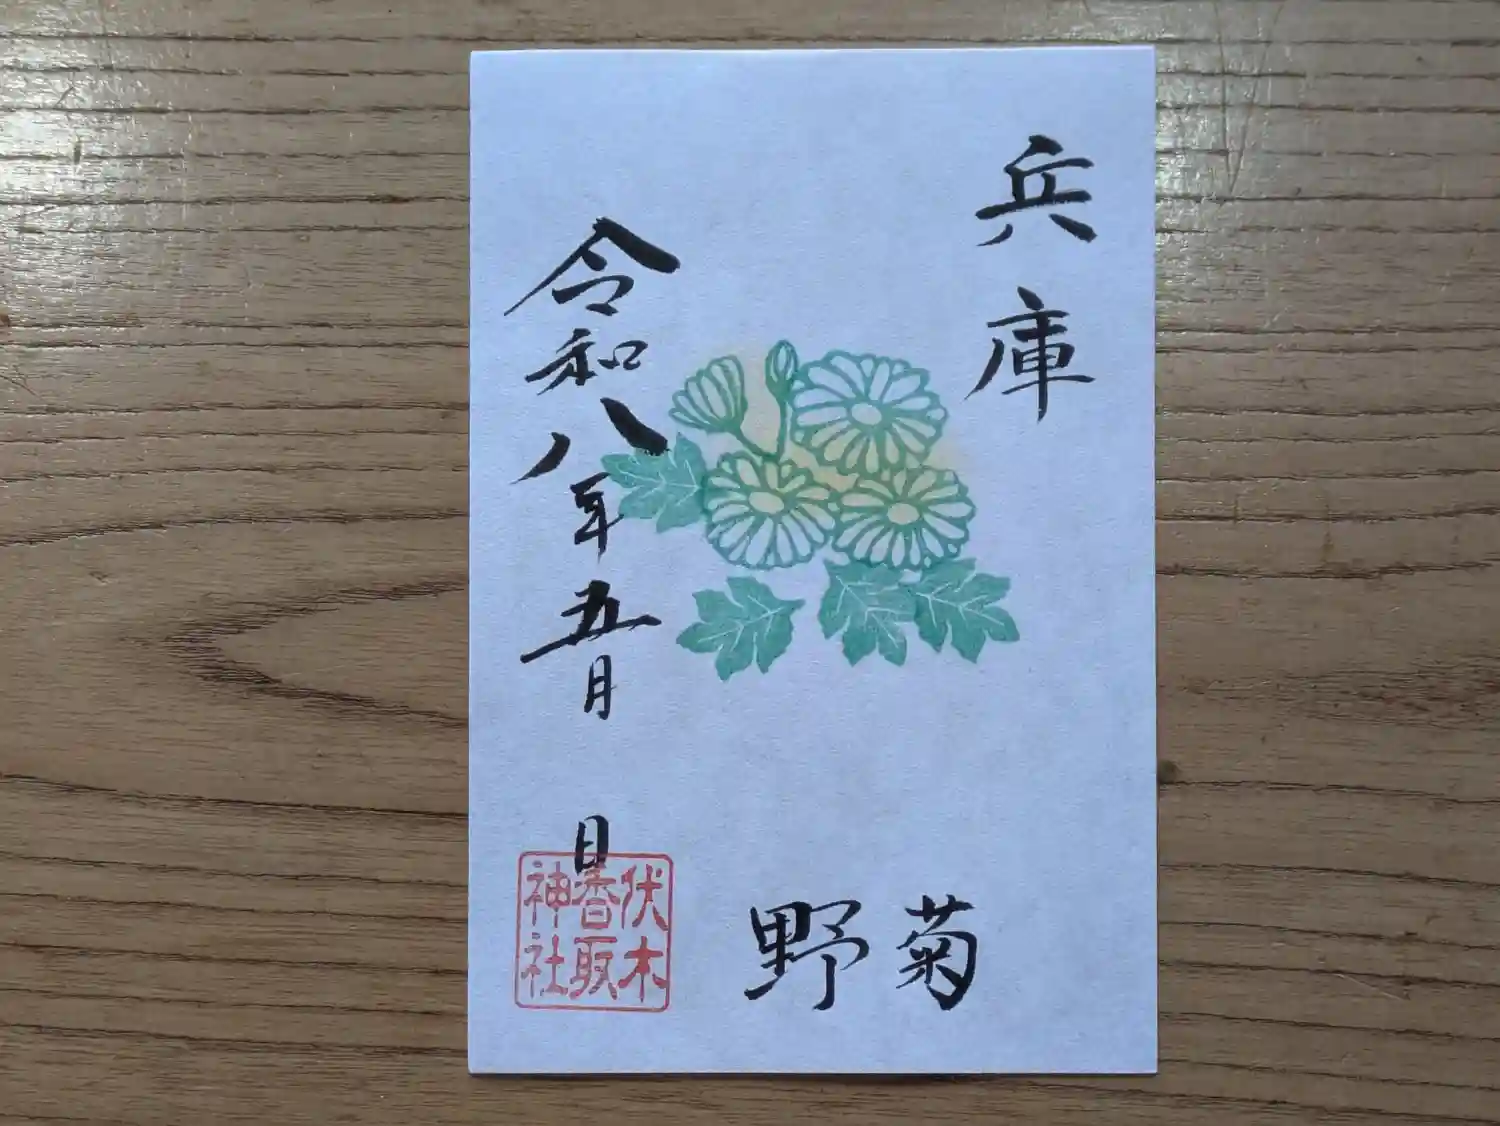 兵庫
野菊
令和八年五月 日
伏木
香取
神社